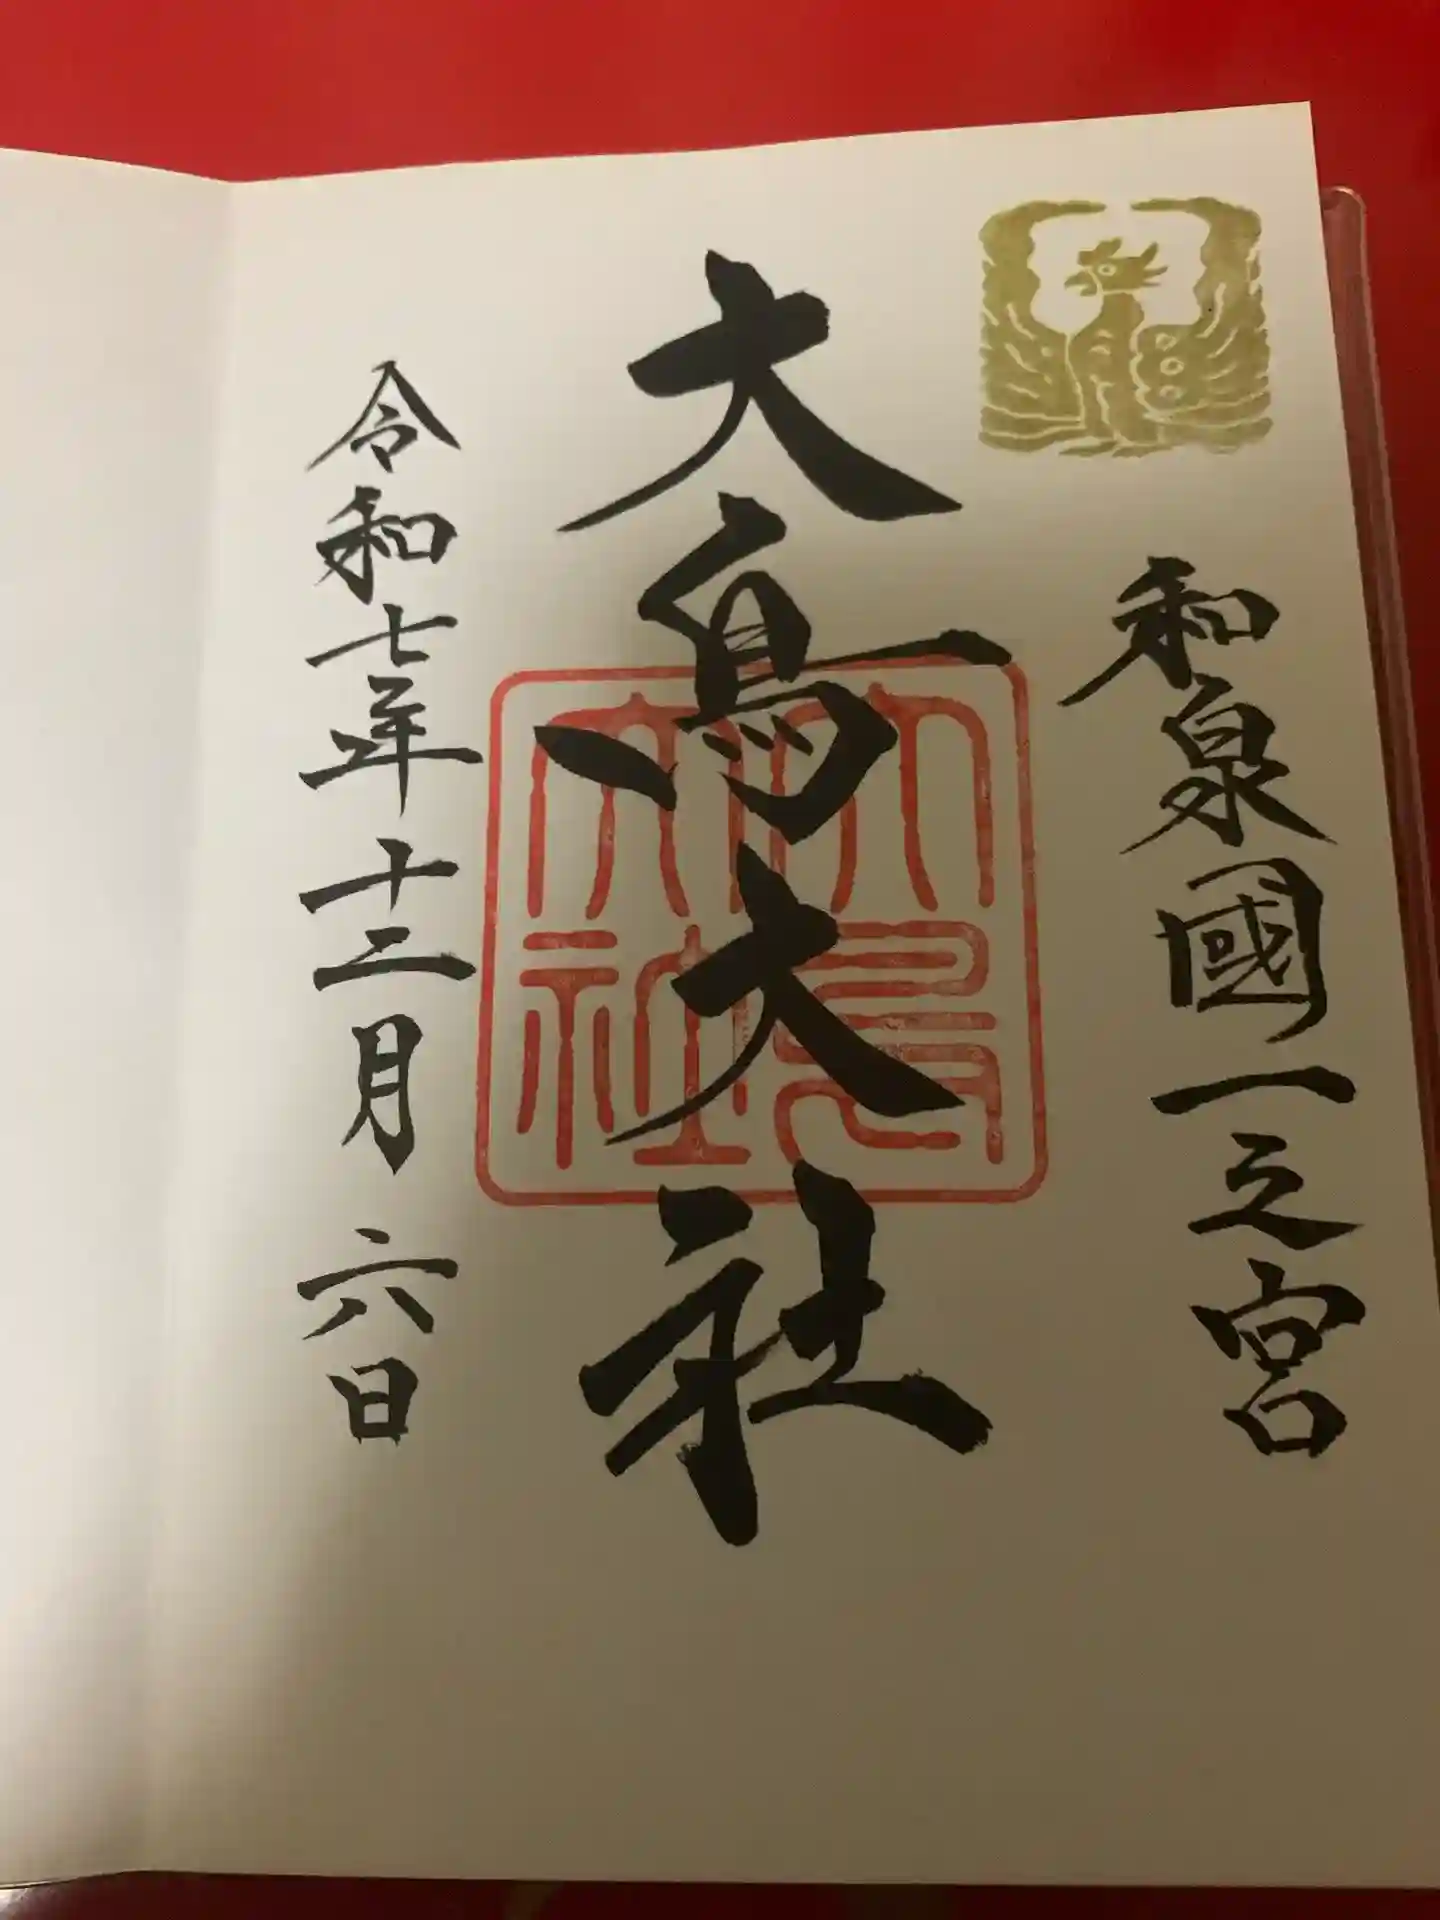 和泉國一之宮
大鳥大社
大鳥大社
令和七年十二月六日